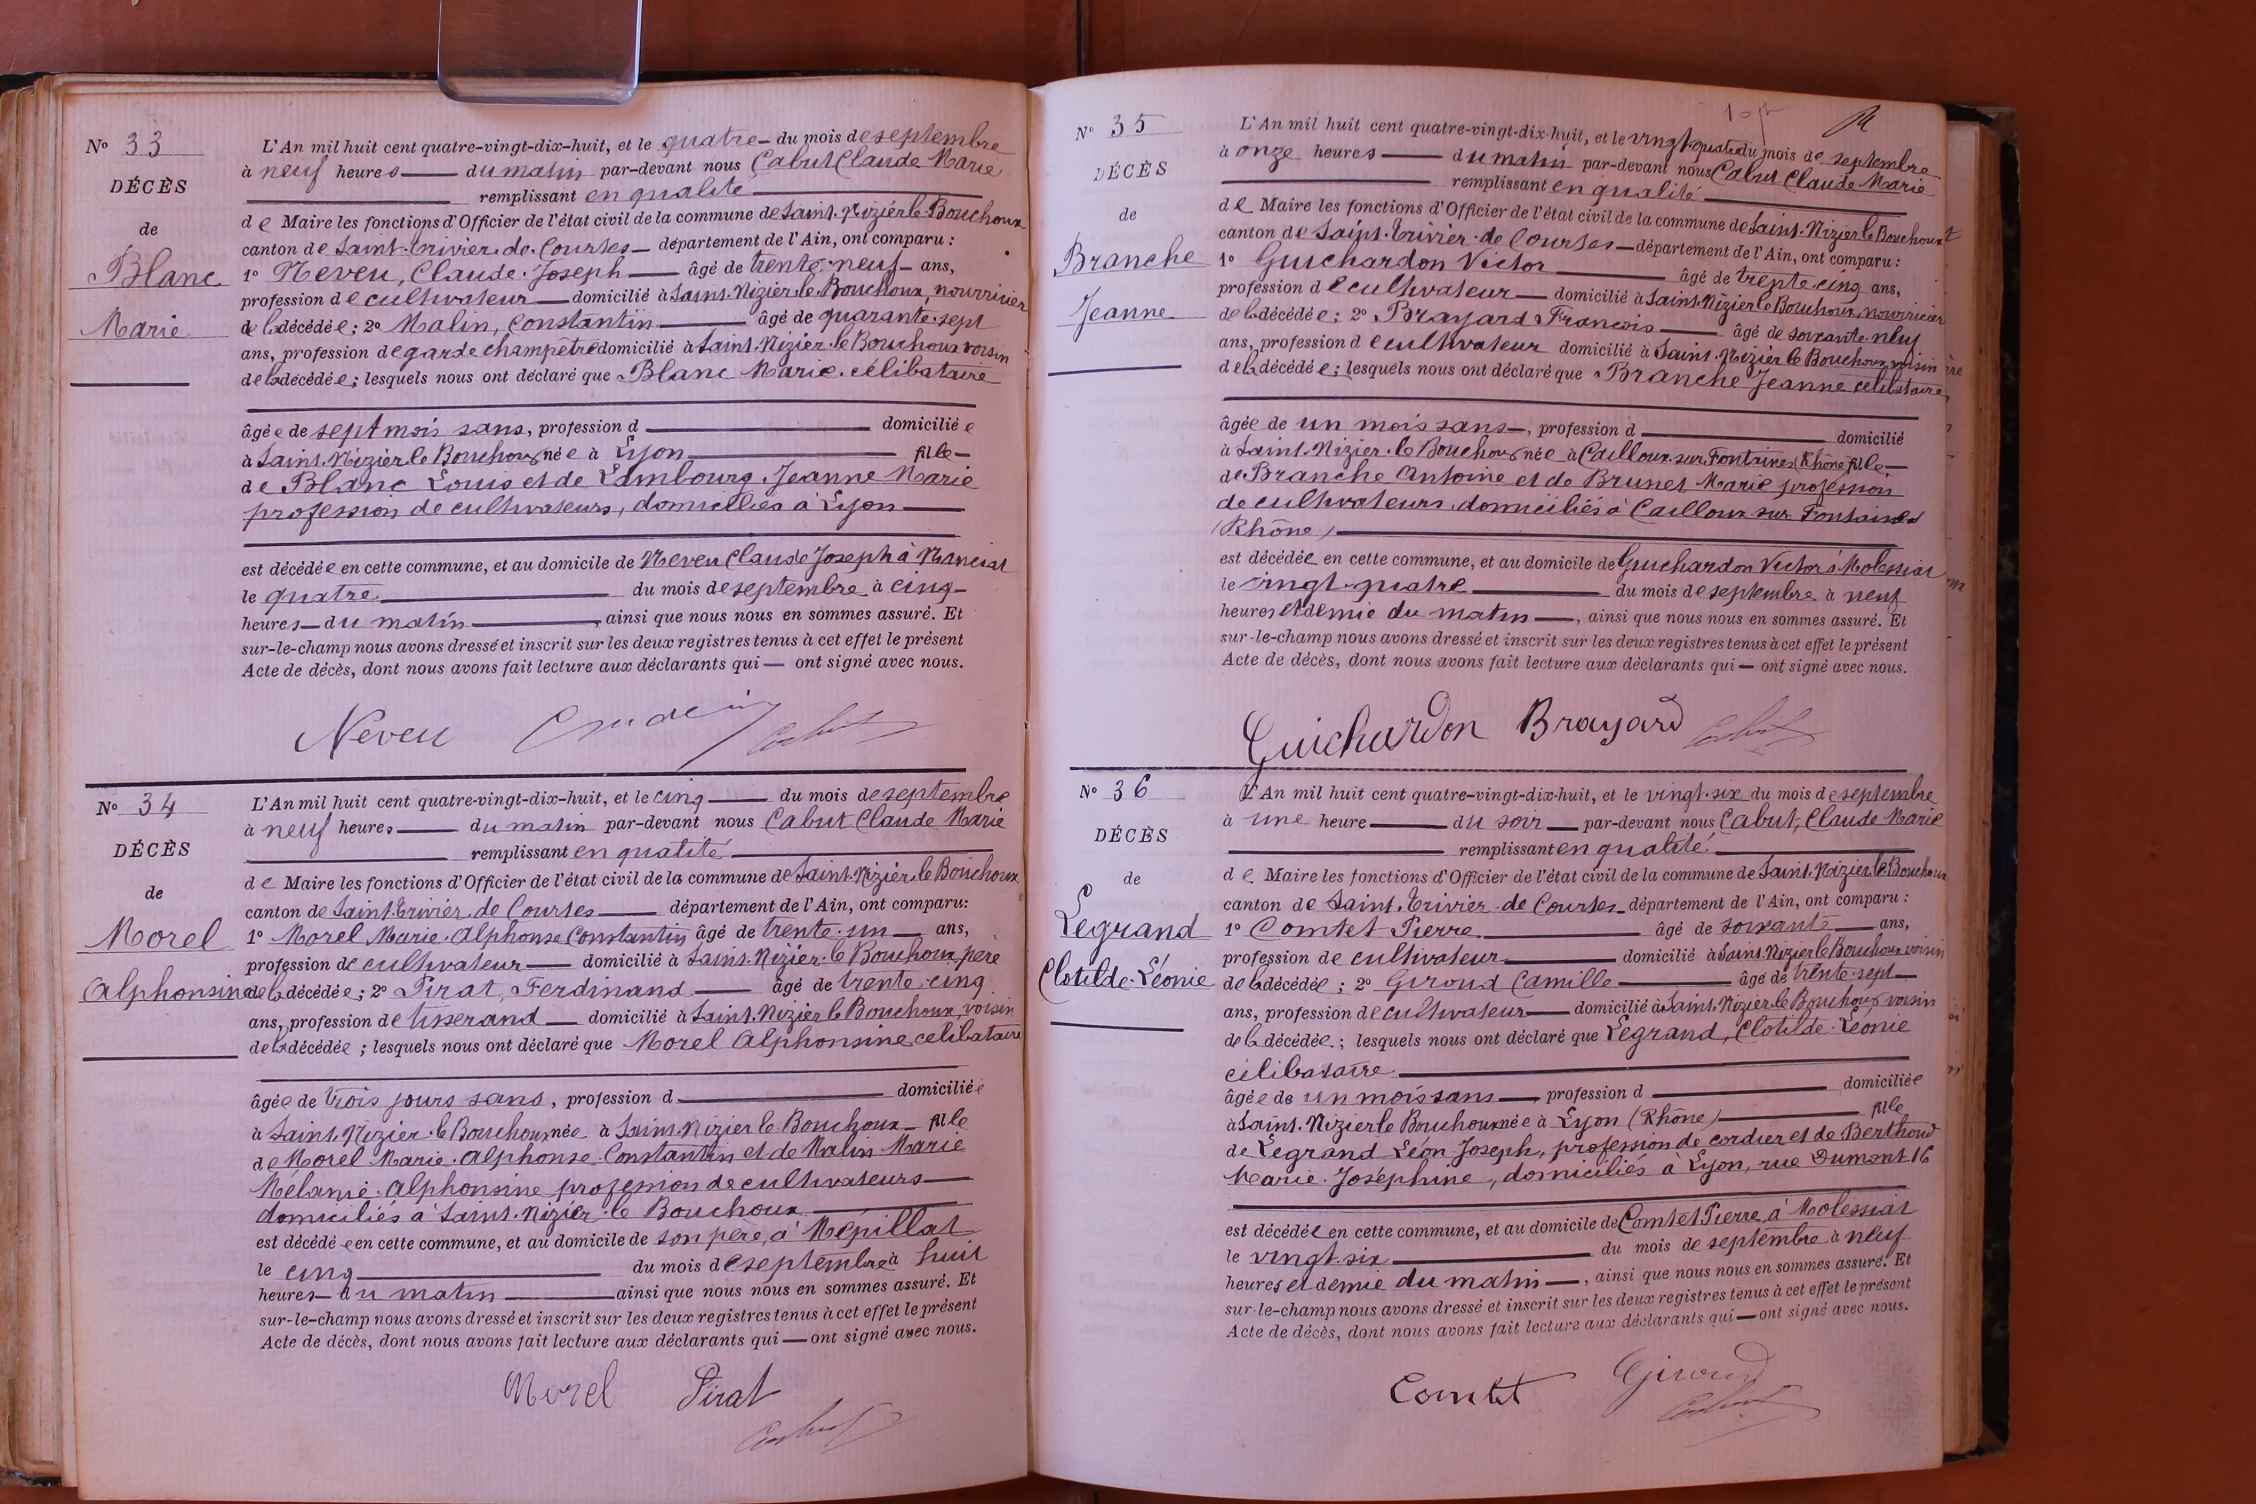 N° 33
DÉCÈS
de
Blanc
Marie
L'An mil huit cent quatre-vingt-dix-huit, et le quatre du mois de septembre
à neuf heures du matin par-devant nous Cabut Claude Marie
remplissant en qualité
de Maire les fonctions d'Officier de l'état civil de la commune de Saint-Nizier-le-Bouchoux
canton de Saint-Trivier-de-Courtes département de l'Ain, ont comparu :
1° Neveu, Claude-Joseph âgé de trente-neuf ans,
profession de cultivateur domicilié à Saint-Nizier-le-Bouchoux, nourricier
de la décédée ; 2° Malin, Constantin âgé de quarante-sept
ans, profession de garde champêtre domicilié à Saint-Nizier-le-Bouchoux voisin
de la décédée ; lesquels nous ont déclaré que Blanc Marie célibataire
âgée de sept mois sans, profession d domiciliée
à Saint-Nizier-le-Bouchoux née à Lyon fille
de Blanc Louis et de Lambourg Jeanne Marie
profession de cultivateurs, domiciliés à Lyon
est décédée en cette commune, et au domicile de Neveu Claude Joseph à Manciat
le quatre du mois de septembre à cinq
heures du matin, ainsi que nous nous en sommes assuré. Et
sur-le-champ nous avons dressé et inscrit sur les deux registres tenus à cet effet le présent
Acte de décès, dont nous avons fait lecture aux déclarants qui ont signé avec nous.
Neveu Cabut
N° 34
DÉCÈS
de
Morel
Alphonsine
L'An mil huit cent quatre-vingt-dix-huit, et le cinq du mois de septembre
à neuf heures du matin par-devant nous Cabut Claude Marie
remplissant en qualité
de Maire les fonctions d'Officier de l'état civil de la commune de Saint-Nizier-le-Bouchoux
canton de Saint-Trivier-de-Courtes département de l'Ain, ont comparu:
1° Morel Marie-Alphonse Constantin âgé de trente-un ans,
profession de cultivateur domicilié à Saint-Nizier-le-Bouchoux, père
de la décédée ; 2° Pirat, Ferdinand âgé de trente-cinq
ans, profession de tisserand domicilié à Saint-Nizier-le-Bouchoux, voisin
de la décédée ; lesquels nous ont déclaré que Morel Alphonsine célibataire
âgée de trois jours sans, profession d domiciliée
à Saint-Nizier-le-Bouchoux née à Saint-Nizier-le-Bouchoux fille
de Morel Marie-Alphonse-Constantin et de Malin Marie
Mélanie-Alphonsine profession de cultivateurs
domiciliés à Saint-Nizier-le-Bouchoux
est décédée en cette commune, et au domicile de son père, à Mépillat
le cinq du mois de septembre à huit
heures du matin ainsi que nous nous en sommes assuré. Et
sur-le-champ nous avons dressé et inscrit sur les deux registres tenus à cet effet le présent
Acte de décès, dont nous avons fait lecture aux déclarants qui ont signé avec nous.
Morel Pirat
Cabut
N° 35
DÉCÈS
de
Branche
Jeanne
L'An mil huit cent quatre-vingt-dix-huit, et le vingt-quatre du mois de septembre
à onze heures du matin par-devant nous Cabut Claude-Marie
remplissant en qualité
de Maire les fonctions d'Officier de l'état civil de la commune de Saint-Nizier-le-Bouchoux
canton de Saint-Trivier-de-Courtes département de l'Ain, ont comparu :
1° Guichardon Victor âgé de trente-cinq ans,
profession de cultivateur domicilié à Saint-Nizier-le-Bouchoux, nourricier
de la décédée ; 2° Brayard François âgé de soixante-neuf
ans, profession de cultivateur domicilié à Saint-Nizier-le-Bouchoux, voisin
de la décédée ; lesquels nous ont déclaré que Branche Jeanne célibataire
âgée de un mois sans, profession d domicilié
à Saint-Nizier-le-Bouchoux née à Cailloux-sur-Fontaines (Rhône) fille
de Branche Antoine et de Brunet Marie profession
de cultivateurs, domiciliés à Cailloux sur Fontaines
(Rhône)
est décédée en cette commune, et au domicile de Guichardon Victor à Molessiat
le vingt-quatre du mois de septembre à neuf
heures et demie du matin, ainsi que nous nous en sommes assuré. Et
sur-le-champ nous avons dressé et inscrit sur les deux registres tenus à cet effet le présent
Acte de décès, dont nous avons fait lecture aux déclarants qui ont signé avec nous.
Guichardon Brayard Cabut
N° 36
DÉCÈS
de
Legrand
Clotilde-Léonie
L'An mil huit cent quatre-vingt-dix-huit, et le vingt-six du mois de septembre
à une heure du soir par-devant nous Cabut, Claude Marie
remplissant en qualité
de Maire les fonctions d'Officier de l'état civil de la commune de Saint-Nizier-le-Bouchoux
canton de Saint-Trivier-de-Courtes département de l'Ain, ont comparu :
1° Comtet Pierre âgé de soixante ans,
profession de cultivateur domicilié à Saint-Nizier-le-Bouchoux voisin
de la décédée ; 2° Giroud Camille âgé de trente-sept
ans, profession de cultivateur domicilié à Saint-Nizier-le-Bouchoux voisin
de la décédée ; lesquels nous ont déclaré que Legrand, Clotilde-Léonie
célibataire
âgée de un mois sans profession d domiciliée
à Saint-Nizier le Bouchoux née à Lyon (Rhône) fille
de Legrand Léon Joseph, profession de cordier et de Berthoud
Marie-Joséphine, domiciliés à Lyon, rue Dumont 16
est décédée en cette commune, et au domicile de Comtet Pierre à Molessiat
le vingt-six du mois de septembre à neuf
heures et demie du matin, ainsi que nous nous en sommes assuré. Et
sur-le-champ nous avons dressé et inscrit sur les deux registres tenus à cet effet le présent
Acte de décès, dont nous avons fait lecture aux déclarants qui ont signé avec nous.
Comtet Giroud
Cabut